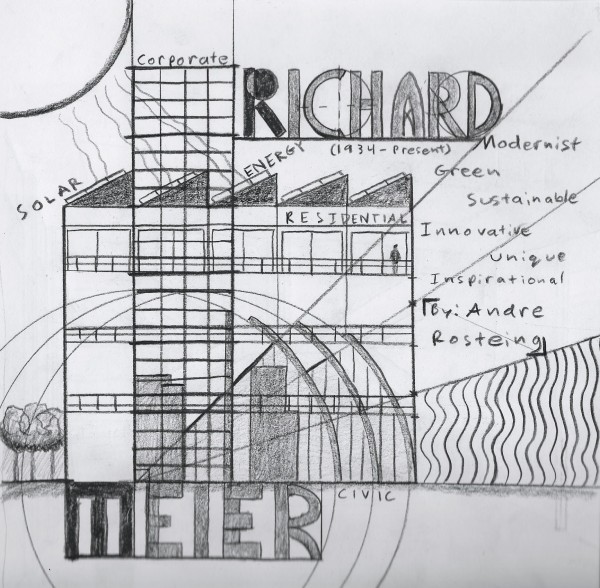 Corporate
RICHARD
(1934-Present)
SOLAR
ENERGY
RESIDENTIAL
Modernist
Green
Sustainable
Innovative
unique
Inspirational
By: Andre
Rosteing
MEIER
CIVIC